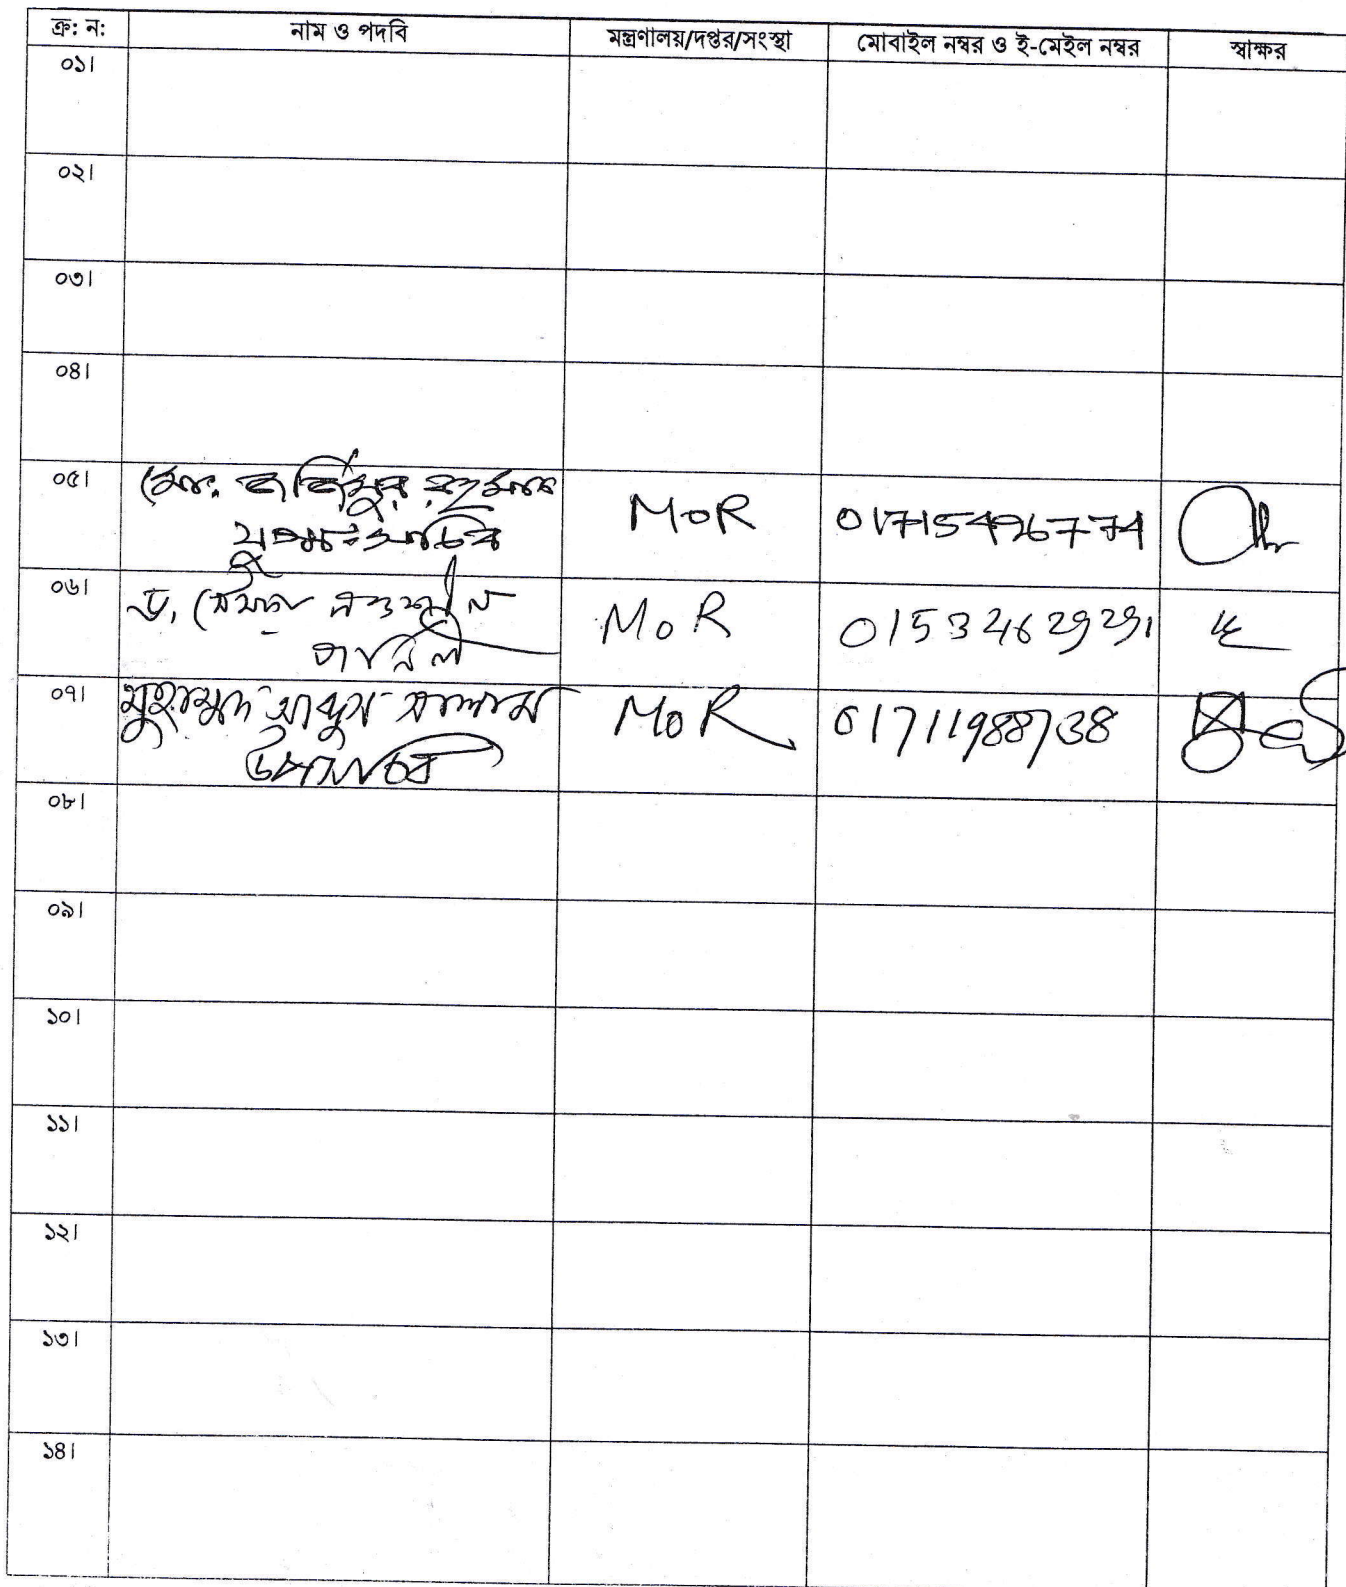 ক্র: ন: নাম ও পদবি মন্ত্রণালয়/দপ্তর/সংস্থা মোবাইল নম্বর ও ই-মেইল নম্বর স্বাক্ষর
০১।
০২।
০৩।
০৪।
০৫। মো. রহমান MoR 01715496774
সচিব
০৬। ড. MoR 01534629291
০৭। মুহাম্মদ আব্দুস সালাম MoR 01711988738
উপসচিব
০৮।
০৯।
১০।
১১।
১২।
১৩।
১৪।